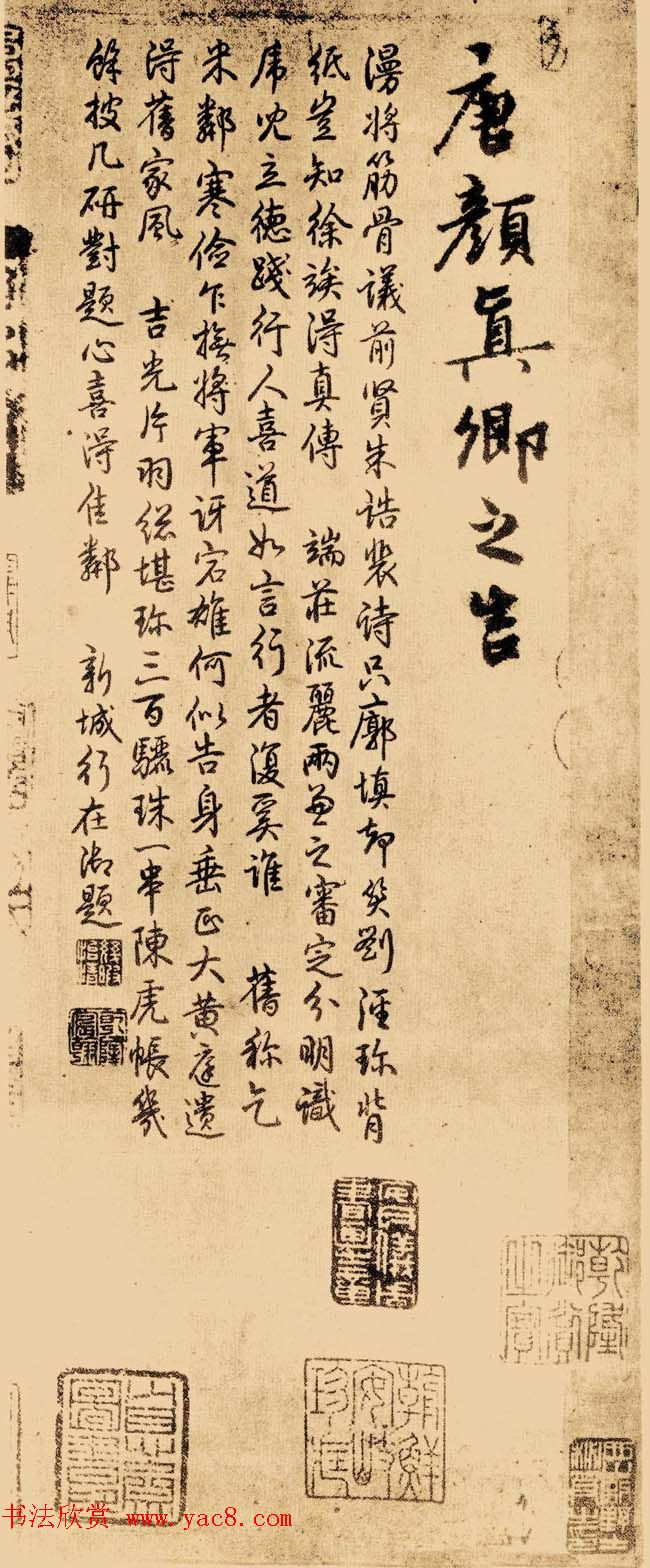 唐顏真卿之告
漫將筋骨議前賢朱誥裴詩只廓填却笑劉涇珍背
紙豈知徐族得真傳 端莊流麗兩兼之審定分明識
席兒立德踐行人喜道如言行者復奚谁 舊稱乞
米鄰寒儉乍撫將軍訝宕雄何似告身垂正大黄庭遺
得舊家風 吉光片羽総堪珍三百驪珠一串陳虎帳幾
餘披几研對題心喜得佳鄰 新城行在御題
乾隆
朝鮮
安岐
珍藏
书法欣赏 www.yac8.com